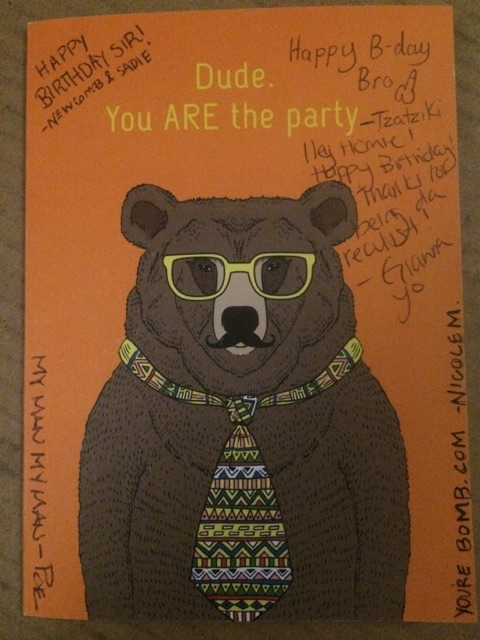 HAPPY
BIRTHDAY SIR!
-NEWCOMB & SADIE
Dude.
You ARE the party
Happy B-day
Bro
-Tzatziki
Hey Homie!
Happy Birthday!
Thanks for
being da
realist!
- Gianna
yo
MY MAN MY MAN - POE
YOURE BOMB.COM -NICOLE M.